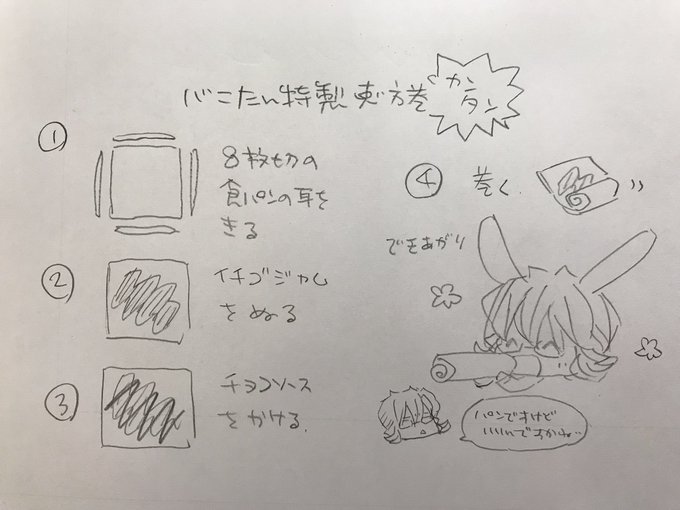 バニたん特製恵方巻
カンタン
①
8枚切の
食パンの耳を
きる
②
イチゴジャム
をぬる
③
チョコソース
をかける.
④ 巻く.
できあがり
パンですけど
いいんですかね…